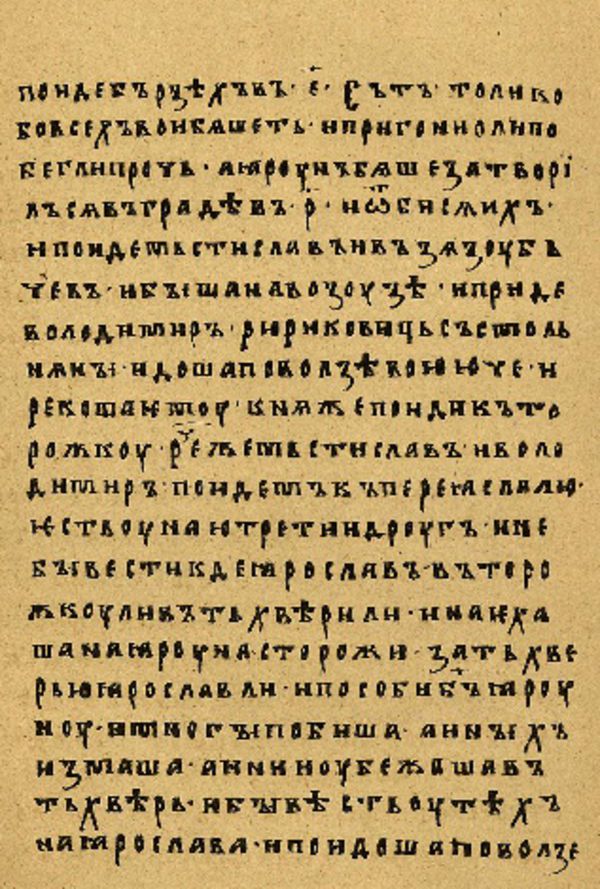 поидебързѣхъвъ·е҃·сътъ·толико
бовсехъвоибѧшеть·ипригониолипо
беглипрочь·аꙗроунъбѧшезатворі
лъсѧвъградѣвъ·р҃·иѿбисѧихъ·
ипоидемьстиславъивъзѧзоубь
чевъ·ибышанавозоузѣ·иприде
володимиръ·рюриковицьсъсмоль
нѧны·идошаповолзѣвоююче·и
рекошаѥмоу·кнѧжепоидикъто
рожкоу·речемьстиславъиволо
димиръ·поидемъкъпереꙗславлю·
ѥствоунаютретиидроугъ·ине
бывестикдеꙗрославъ·въторо
жкоуливътьхвѣрили·инаѥха
шанаꙗроунасторожи·затьхве
рьюꙗрославли·ипособибъꙗроу
ноу·имногыпобиша·аиныхъ
измаша·аинииоубежашавъ
тьхвѣрь·ибывѣстьоутѣхъ
наꙗрослава·ипоидошаповолзе